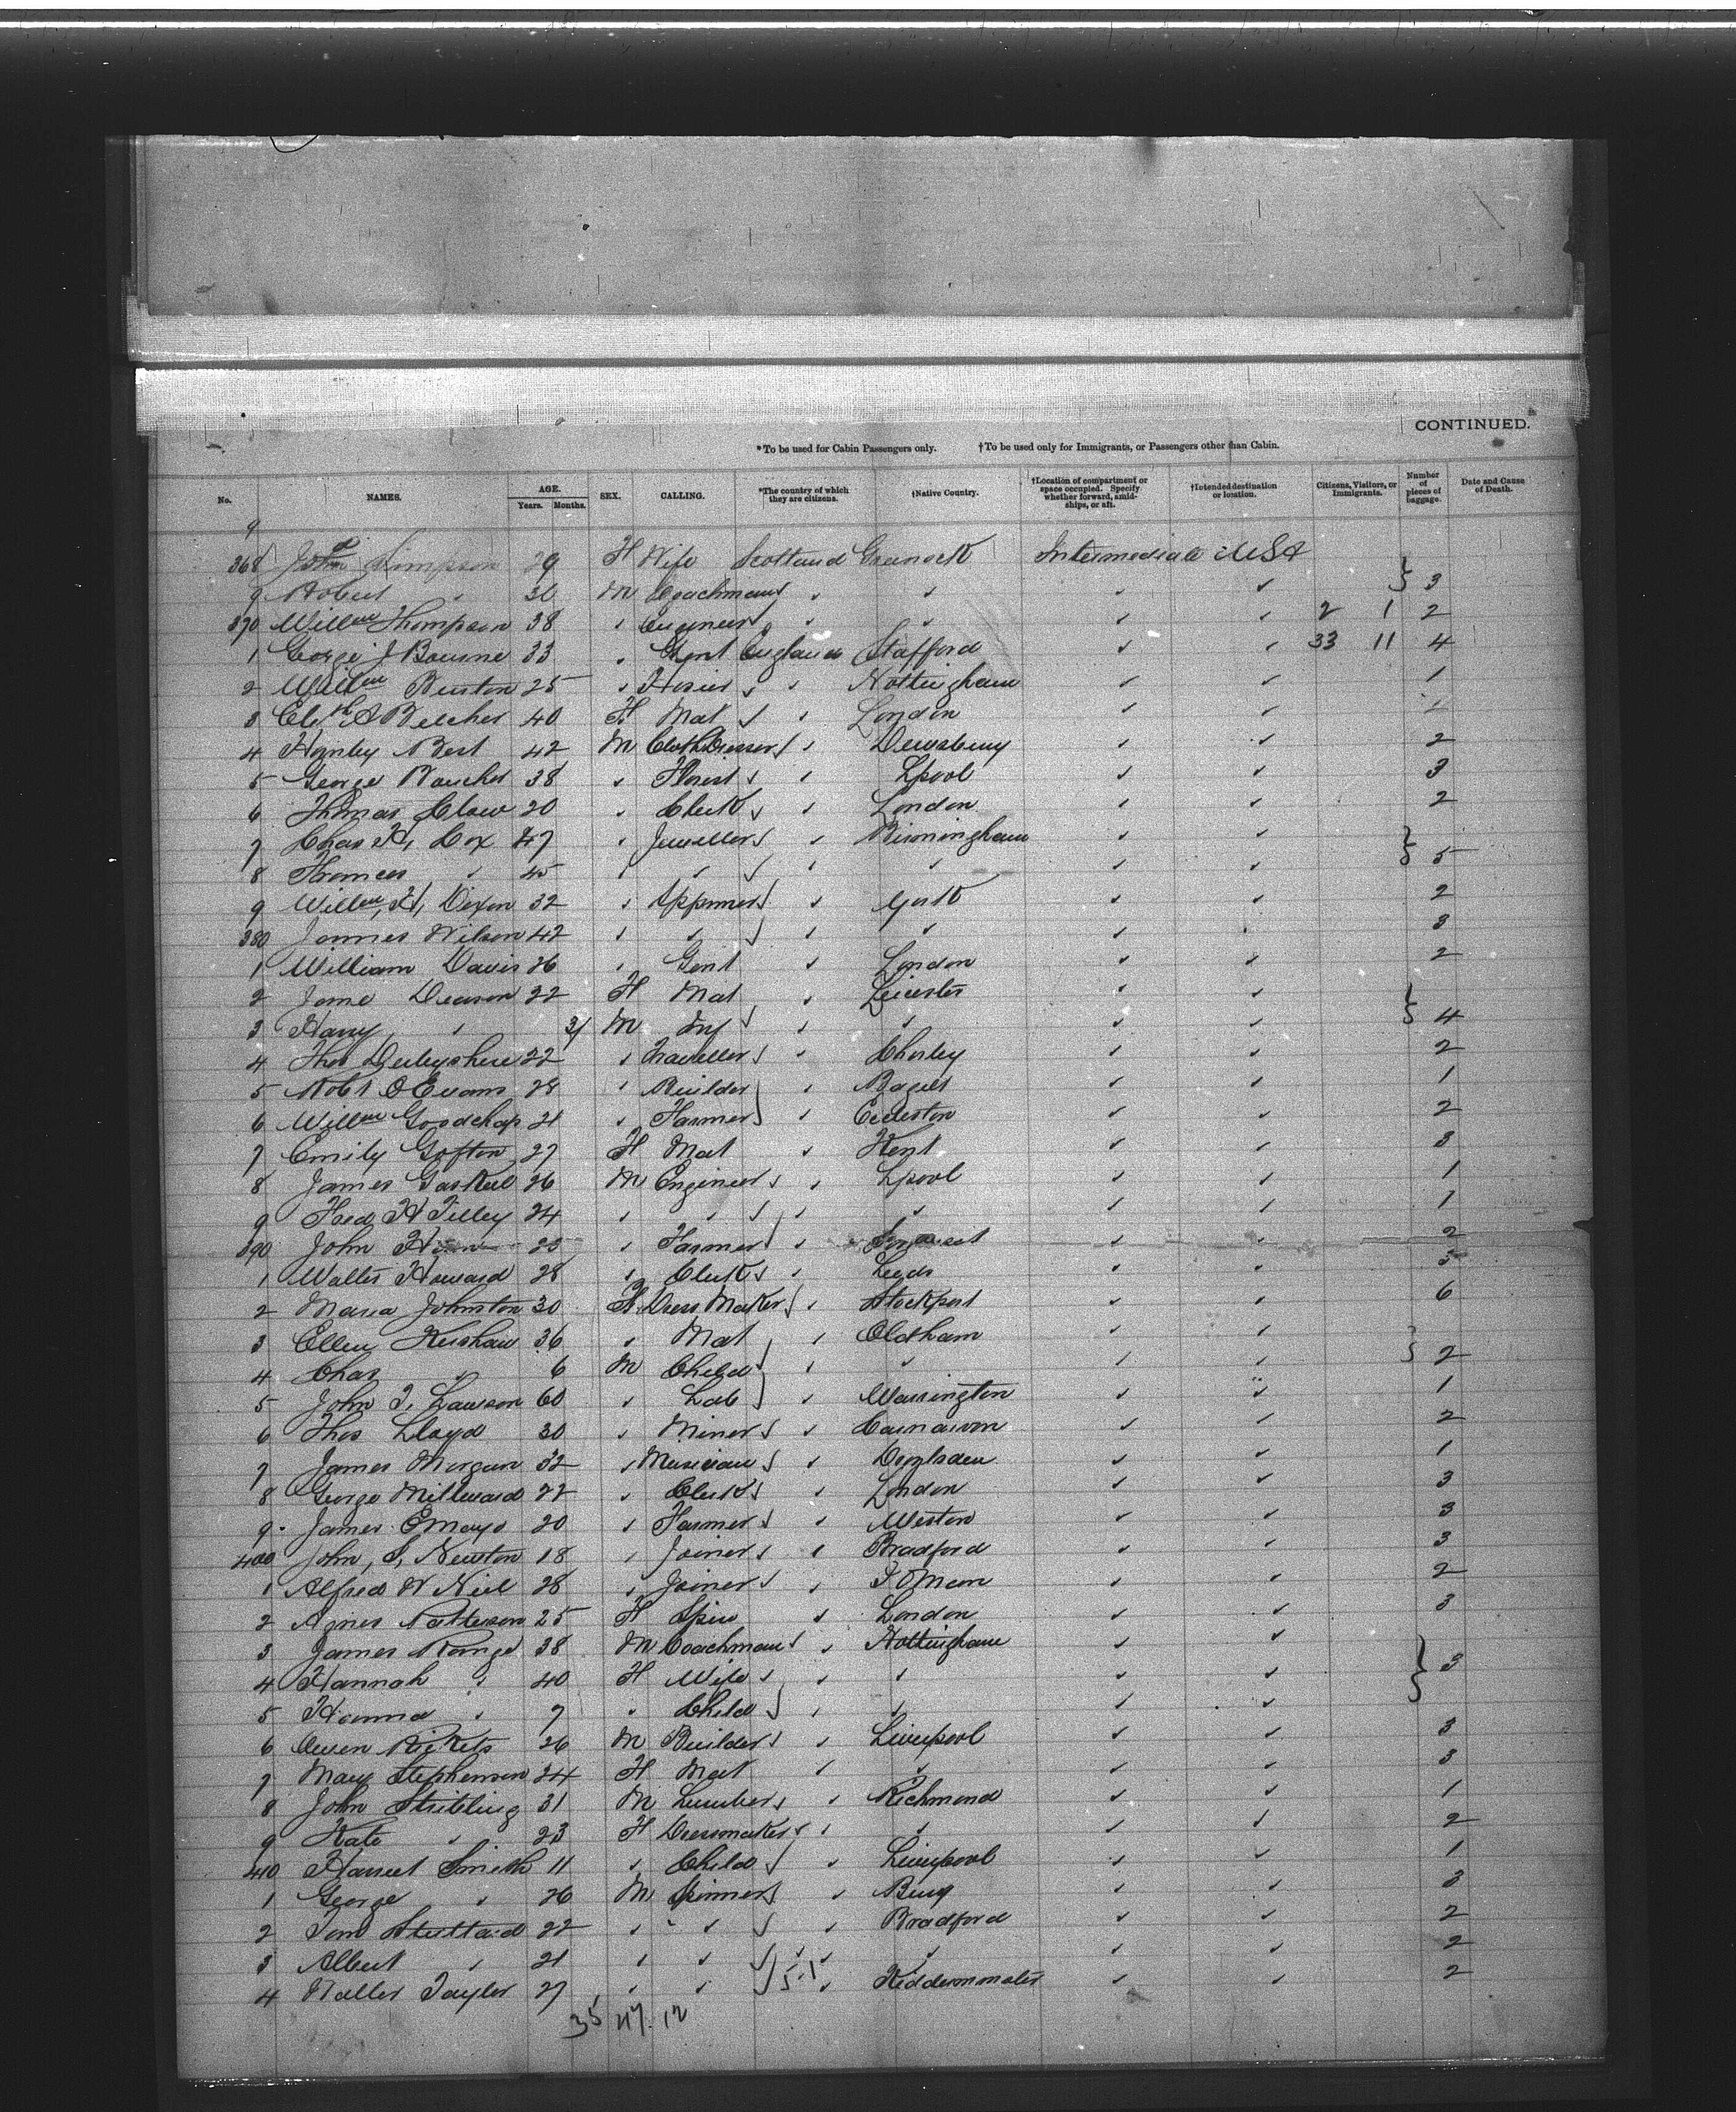 CONTINUED.
*To be used for Cabin Passengers only. †To be used only for Immigrants, or Passengers other than Cabin.
No. NAMES. AGE. Years. Months. SEX. CALLING. *The country of which they are citizens. †Native Country. †Location of compartment or space occupied. Specify whether forward, amidships, or aft. †Intended destination or location. Citizens, Visitors, or Immigrants. Number of pieces of baggage. Date and Cause of Death.
368 Simpson 29 F Wife Scotland Greenock Intermediate USA
9 Robert " 30 M Coachman " " " " 3
370 Willm Thompson 38 " Engineer " " " " 2 1 2
1 George J Bourne 33 " Gent England Stafford " " 33 11 4
2 Willm Burton 25 " Hosier " Nottingham " " 1
3 Elizth A Belcher 40 F Mat " London " "
4 Hanley Best 42 M Cloth Dresser " Dewsbury " " 2
5 George Boucher 38 " Florist " Lpool " " 3
6 Thomas Clow 20 " Clerk " London " " 2
7 Chas H, Cox 47 " Jeweller " Birmingham " "
8 Thomas " 45 " " " " " " 5
9 Willm, H, Dixon 32 " " York " " 2
380 James Wilson 42 " " " " " 3
1 William Davis 26 " Gent " London " " 2
2 Jane Deason 22 F Mat " Leicester " "
3 Harry " M Inf " " " " 4
4 Thos Derbyshire 22 " Traveller " Chorley " " 2
5 Robt O Evans 28 " Builder " " " 1
6 Willm Goodchap 21 " Farmer " Eccleston " " 2
7 Emily Gofton 27 F Mat " Kent " " 3
8 James Gaskell 26 M Engineer " Lpool " " 1
9 Fred H Tilley 24 " " " " " " 1
390 John 23 " Farmer " " " 2
1 Walter Howard 28 " Clerk " Leeds " " 3
2 Maria Johnston 30 F Dress Maker " Stockport " " 6
3 Ellen Kershaw 36 " Mat " Oldham " "
4 Chas " 6 M Child " " " " 2
5 John T, Lawson 60 " Lab " Warrington " " 1
6 Thos Lloyd 30 " Miner " Carnarvon " " 2
7 James Morgan 32 " Musician " " " 1
8 George Millward 22 " Clerk " London " " 3
9 James E Mayo 20 " Farmer " Weston " " 3
400 John, S, Newton 18 " Joiner " Bradford " " 3
1 Alfred W Neil 28 " Joiner " I O Man " " 2
2 Agnes Patterson 25 F Spin " London " " 3
3 James Range 38 M Coachman " Nottingham " "
4 Hannah " 40 F Wife " " " " 3
5 " 7 " Child " " " "
6 Owen Rickets 26 M Builder " Liverpool " " 3
7 Mary Stephenson 24 F Mat " " " " 3
8 John Stribling 31 M " Richmond " " 1
9 Kate " 23 F Dressmaker " " " " 2
410 Harriet Smith 11 " Child " Liverpool " " 1
1 George " 26 M Spinner " Bury " " 3
2 Tom Stuttard 22 " " " Bradford " " 2
3 Albert " 21 " " " " " " 2
4 Walter Taylor 27 " " " Kidderminster " " 2
35 47. 12